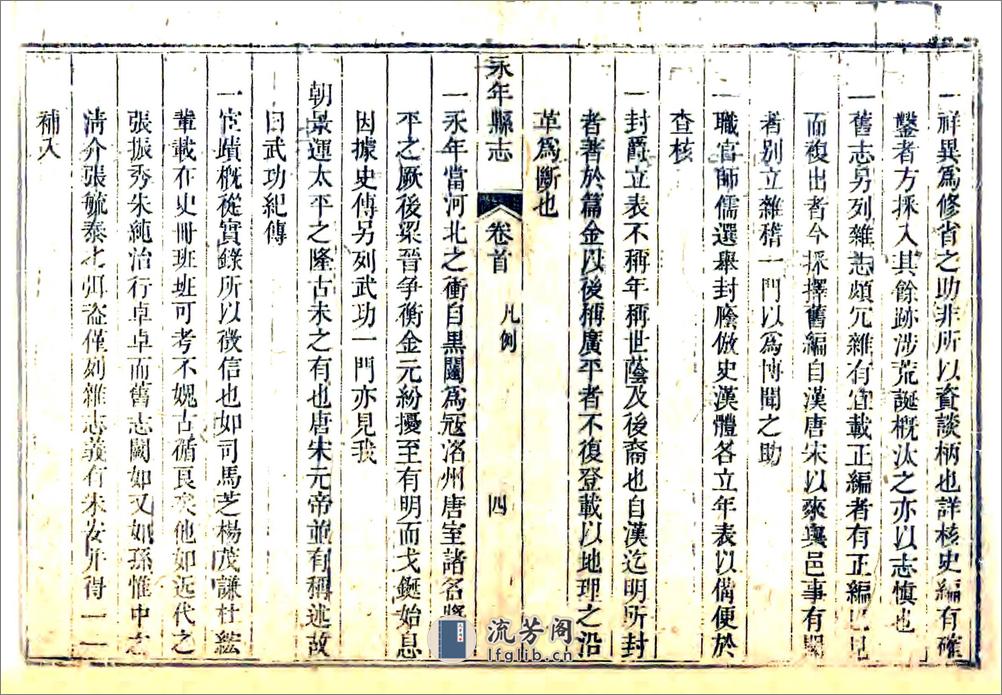 一祥異爲修省之助非所以資談柄也詳核史編有確
鑿者方採入其餘跡涉荒誕概汰之亦以志慎也
一舊志另列雜志頗冗雜有宜載正編者有正編已見
而複出者今採擇舊編自漢唐宋以來與邑事有關
者別立雜稽一門以爲博聞之助
一職官師儒選舉封廕倣史漢體各立年表以備便於
查核
一封爵立表不稱年稱世蔭及後裔也自漢迄明所封
者著於篇金以後稱廣平者不復登載以地理之沿
革爲斷也
永年縣志 卷首 凡例 四
一永年當河北之衝自黑闥爲寇洺州唐室諸名將
平之厥後梁晉爭衡金元紛擾至有明而戈鋋始息
因據史傳另列武功一門亦見我
朝景運太平之隆古未之有也唐宋元帝並有稱述故
曰武功紀傳
一宦蹟概從實錄所以徵信也如司馬芝楊茂謙杜紘
輩載在史冊班班可考不媿古循良矣他如近代之
張振秀朱純治行卓卓而舊志闕如又如孫惟中之
清介張毓泰之弭盜僅列雜志義有未安并得一一
補入
流芳阁
lfglib.cn